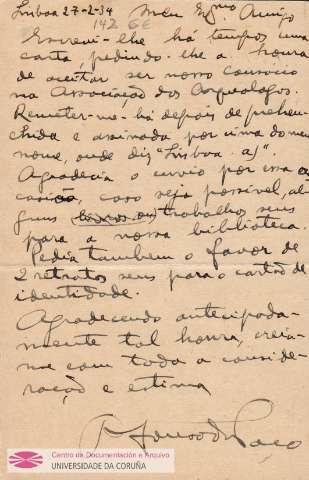 Lisboa 27-2-34 Meu Exmo Amigo
142 6E
Escrevi-lhe há tempos uma
carta, pedindo-lhe a honra
de aceitar ser nosso consocio
na Associação dos Arqueologos.
Remeter-me-há depois de prehen-
chida e assinada por cima do meu
nome, onde diz "Lisboa a)".
Agradecia o envio por essa o-
casião, caso seja possivel, al-
guns trabalhos seus
para a nossa biblioteca.
Pedia tambem o favor de
2 retratos seus para o cartão de
identidade.
Agradecendo antecipada-
mente tal honra, creia-
me com toda a conside-
ração e estima
Afonso do Paço
Centro de Documentación e Arquivo
UNIVERSIDADE DA CORUÑA